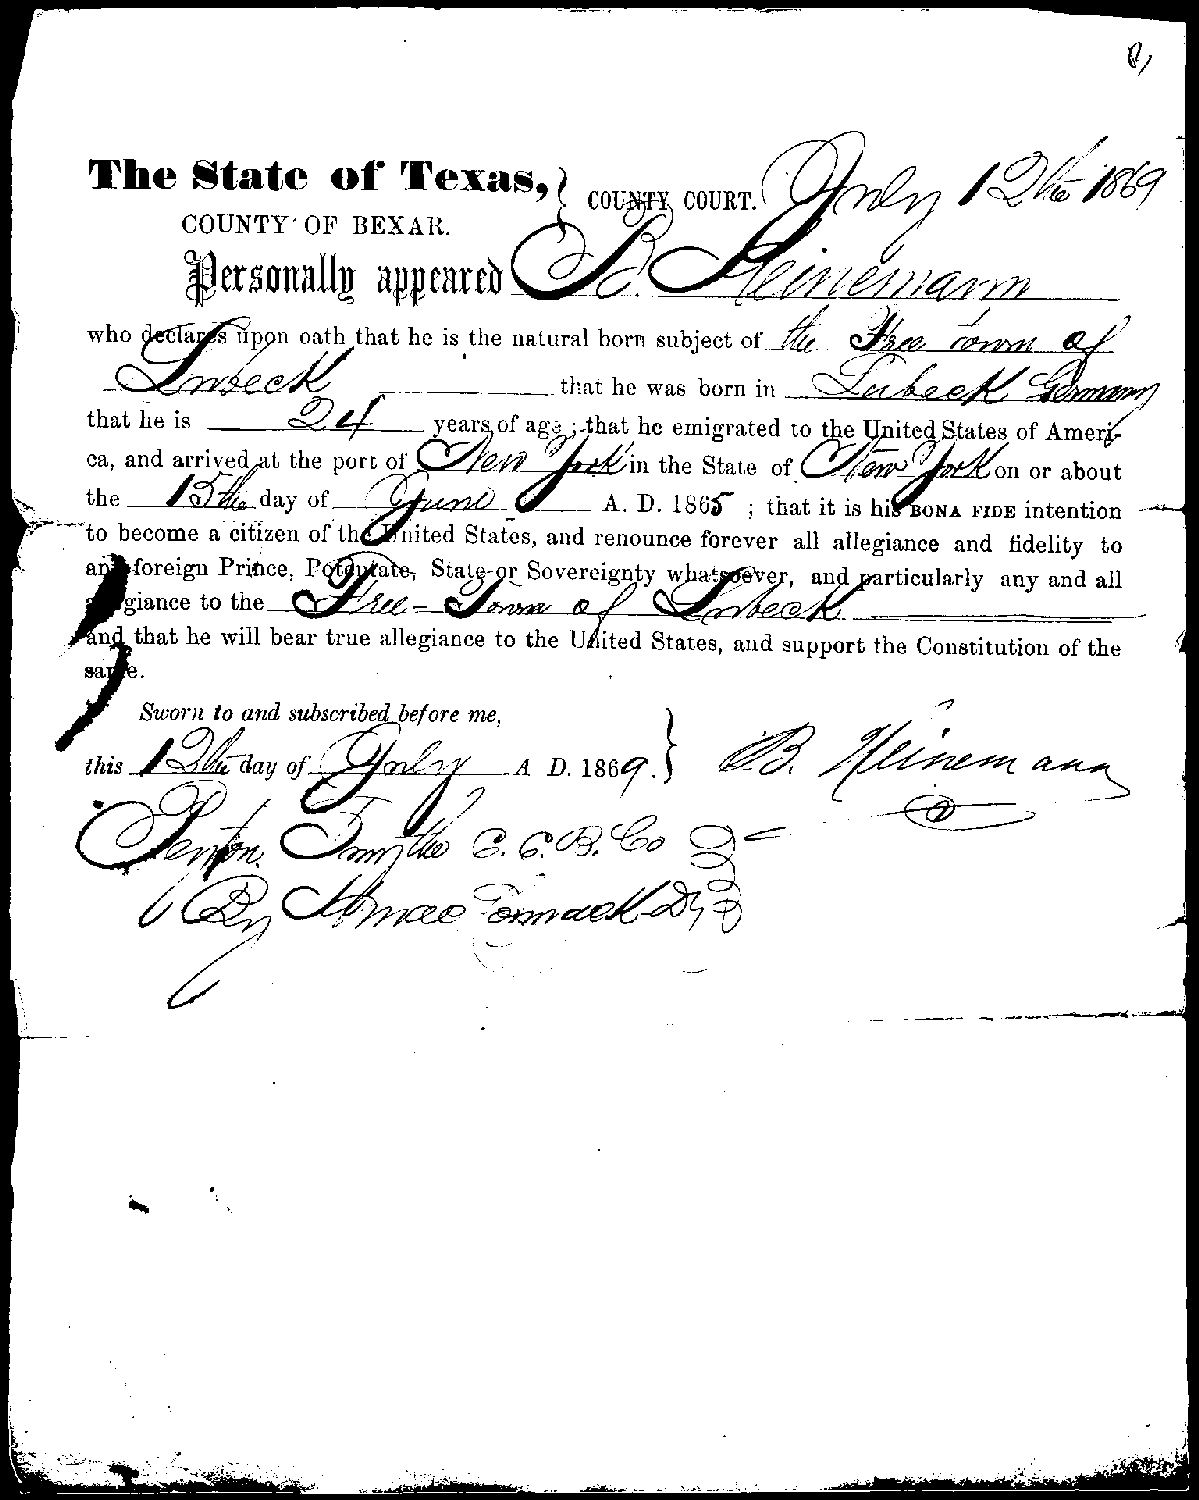 The State of Texas, } COUNTY COURT. July 12th 1869
COUNTY OF BEXAR.
Personally appeared B. Heinemann
who declares upon oath that he is the natural born subject of the Free Town of
Lubeck that he was born in Lubeck Germany
that he is 24 years of age; that he emigrated to the United States of Ameri-
ca, and arrived at the port of New York in the State of New York on or about
the 15th day of June A. D. 1865; that it is his BONA FIDE intention
to become a citizen of the United States, and renounce forever all allegiance and fidelity to
any foreign Prince, Potentate, State or Sovereignty whatsoever, and particularly any and all
allegiance to the Free-Town of Lubeck
and that he will bear true allegiance to the United States, and support the Constitution of the
same.
Sworn to and subscribed before me,
this 12th day of July A. D. 1869. } B. Heinemann
Smythe C. C. B. Co
By